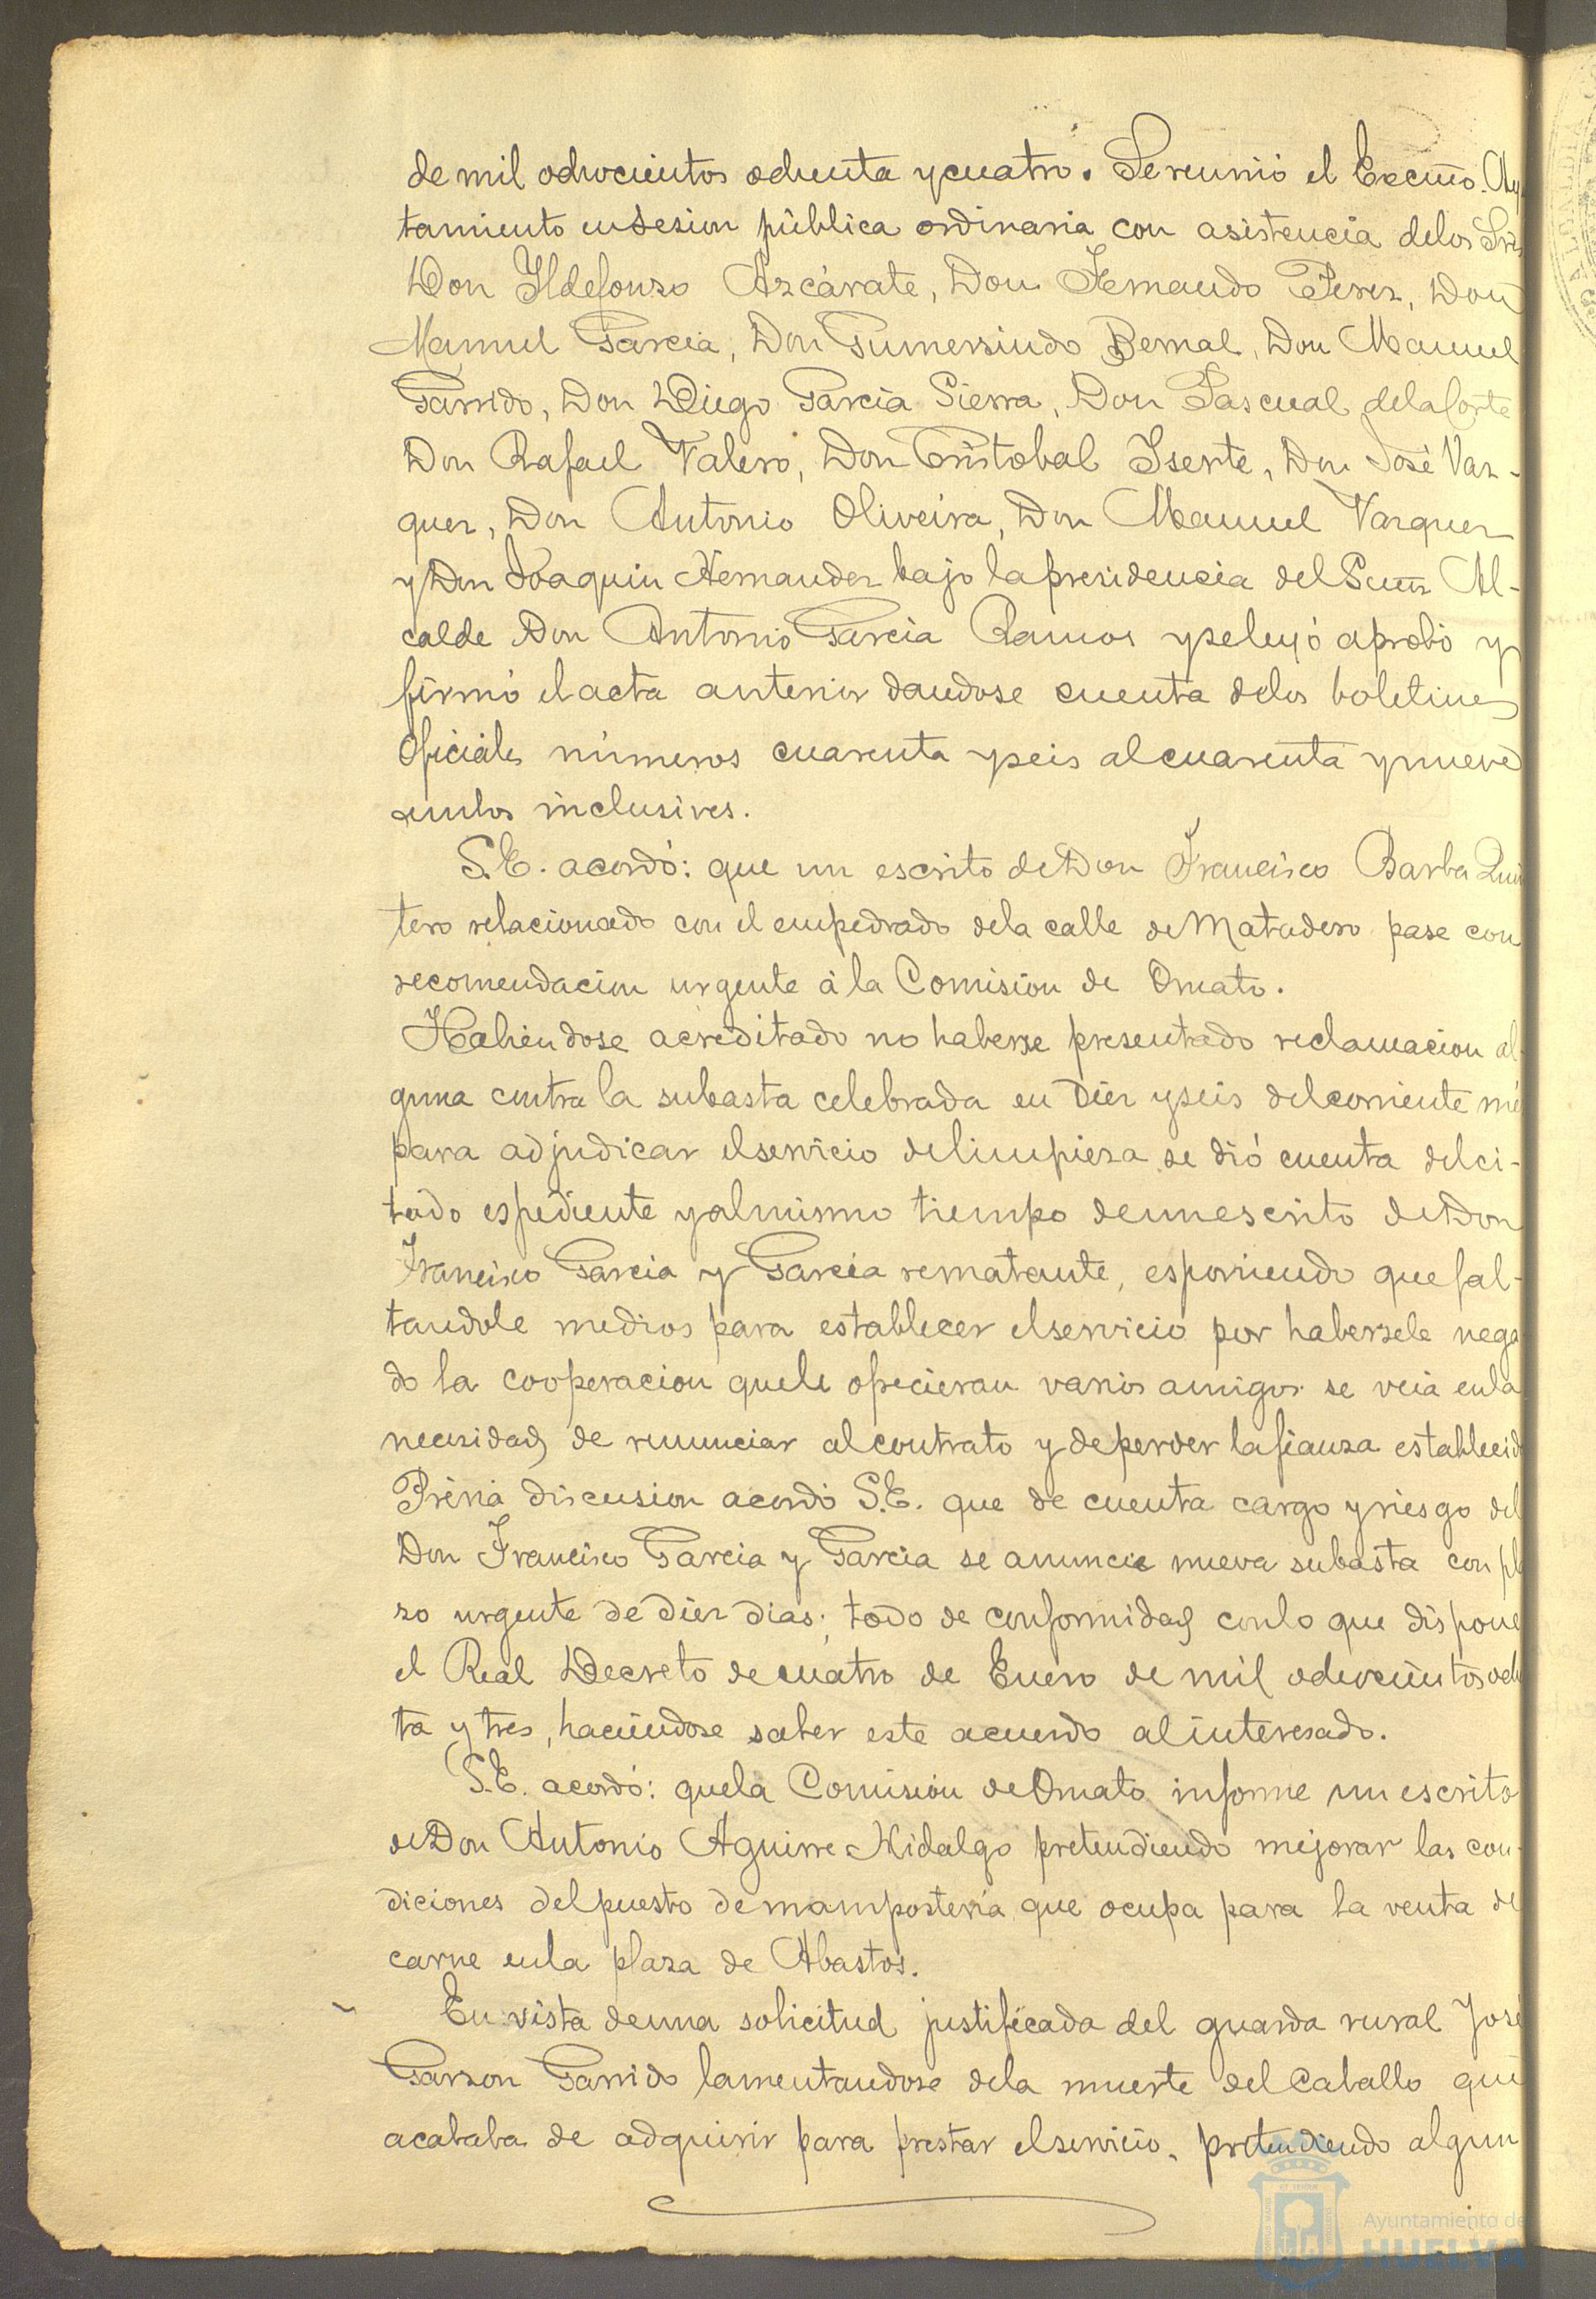 de mil ochocientos ochenta y cuatro. Se reunió el Excmo. Ayu
tamiento en sesion pública ordinaria con asistencia de los Sres
Don Ildefonso Azcárate, Don Fernando Perez, Don
Manuel Garcia, Don Gumersindo Bernal, Don Manuel
Garrido, Don Diego Garcia Sierra, Don Pascual de la Corte
Don Rafael Valero, Don Cristobal Isente, Don José Vaz-
quez, Don Antonio Oliveira, Don Manuel Vazquez
y Don Joaquin Hernandez bajo la presidencia del Señor Al-
calde Don Antonio Garcia Ramos y se leyó aprobó y
firmó el acta anterior dandose cuenta de los boletines
oficiales números cuarenta y seis al cuarenta y nueve
ambos inclusives.
S.E. acordó: que un escrito de Don Francisco Barba Quin
tero relacionado con el empedrado de la calle de Matadero pase con
recomendacion urgente á la Comision de Ornato.
Habiendose acreditado no haberse presentado reclamacion al-
guna contra la subasta celebrada en diez y seis del corriente més
para adjudicar el servicio de limpieza se dió cuenta del ci-
tado espediente y al mismo tiempo de un escrito de Don
Francisco Garcia y Garcia rematante, esponiendo que fal-
tandole medios para establecer el servicio por habersele nega
do la cooperacion que le ofrecieran varios amigos se veia en la
necesidad de renunciar al contrato y de perder la fianza establecid
Prévia discusion acordó S.E. que de cuenta cargo y riesgo del
Don Francisco Garcia y Garcia se anuncie nueva subasta con pl
zo urgente de diez dias; todo de conformidad con lo que dispone
el Real Decreto de cuatro de Enero de mil ochocientos och
ta y tres, haciendose saber este acuerdo al interesado.
S.E. acordó: que la Comision de Ornato informe un escrito
de Don Antonio Aguirre Hidalgo pretendiendo mejorar las con-
diciones del puesto de mamposteria que ocupa para la venta de
carne en la plaza de Abastos.
En vista de una solicitud justificada del guarda rural José
Garzon Garrido lamentandose de la muerte del caballo que
acababa de adquirir para prestar el servicio, pretendiendo algun
Ayuntamiento de
HUELVA